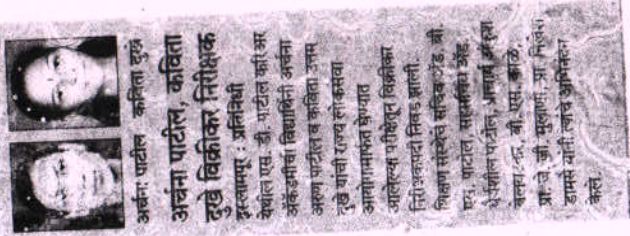 अर्चना पाटील कविता दुखे
अर्चना पाटील, कविता
दुखे विक्रीकर निरीक्षक
इस्लामपूर : प्रतिनिधी
येथील एस. डी. पाटील करिअर
अॅकॅडमीची विद्यार्थिनी अर्चना
अरुण पाटील व कविता उत्तम
दुखे यांची राज्य लोकसेवा
आयोगामार्फत घेण्यात
आलेल्या परीक्षेतून विक्रीकर
निरीक्षकपदी निवड झाली.
शिक्षण संस्थेचे सचिव अॅड. बी.
एन. पाटील, सहसचिव अॅड.
धैर्यशील पाटील, प्राचार्य
बी. एस. काळे,
प्रा. जे. जी. मुलाणी, प्रा. मिलिंद
डामसे यांनी त्यांचे अभिनंदन
केले.